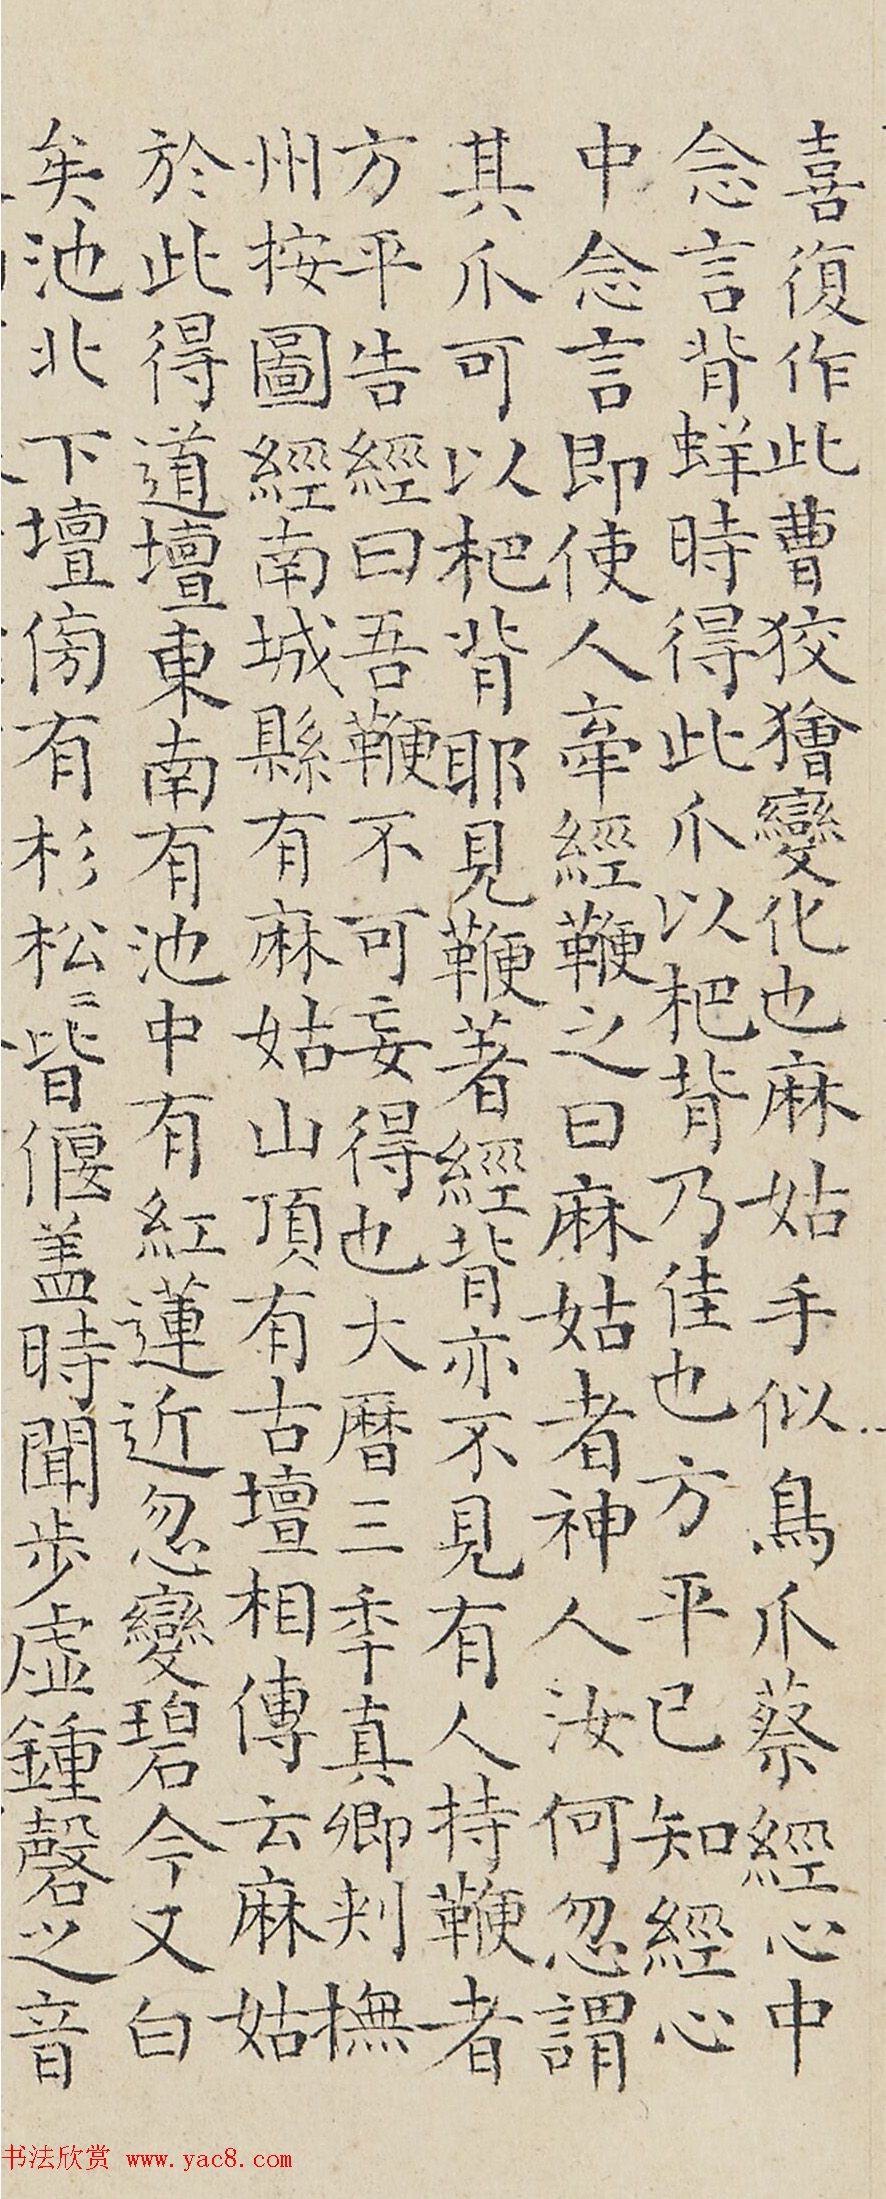 喜復作此曹狡獪變化也麻姑手似鳥爪蔡經心中
念言背蛘時得此爪以杷背乃佳也方平已知經心
中念言即使人牽經鞭之曰麻姑者神人汝何忽謂
其爪可以杷背耶見鞭著經背亦不見有人持鞭者
方平告經曰吾鞭不可妄得也大曆三秊真卿刾撫
州按圖經南城縣有麻姑山頂有古壇相傳云麻姑
於此得道壇東南有池中有紅蓮近忽變碧今又白
矣池北下壇傍有杉松〻皆偃盖時聞步虛鍾磬之音
书法欣赏 www.yac8.com